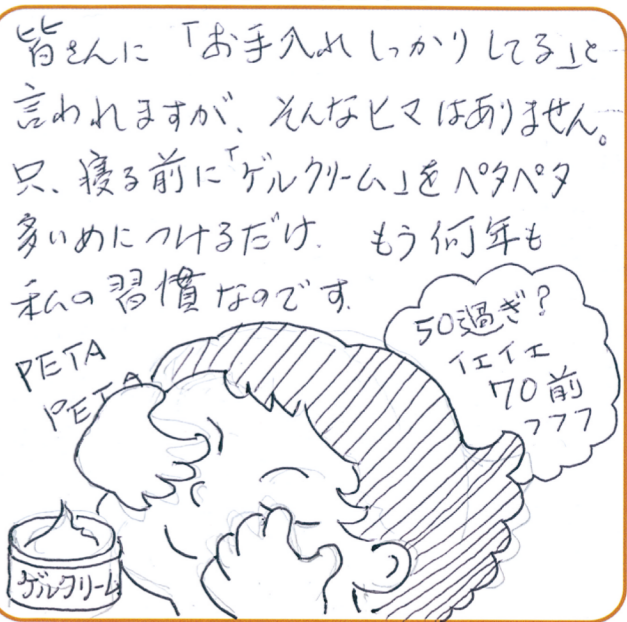 皆さんに「お手入れしっかりしてる」と
言われますが、そんなヒマはありません。
只、寝る前に「ゲルクリーム」をペタペタ
多いめにつけるだけ. もう何年も
私の習慣なのです.
PETA
PETA
50過ぎ?
イエイエ
70前
フフフ
ゲルクリーム